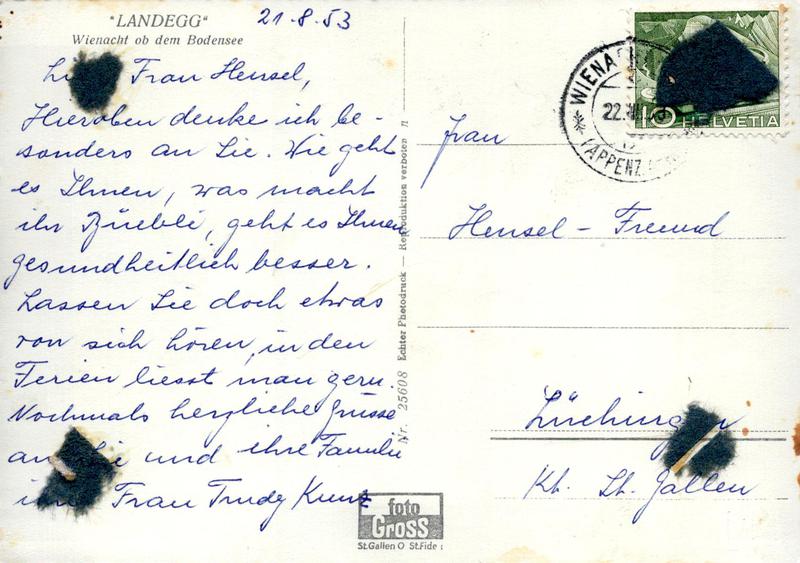 "LANDEGG"
Wienacht ob dem Bodensee
21.8.53
Frau Hensel,
Hieroben denke ich be-
sonders an Sie. Wie geht
es Ihnen, was macht
ihr Büebli, geht es Ihnen
gesundheitlich besser.
Lassen Sie doch etwas
von sich hören, in den
Ferien liesst man gern.
Nochmals herzliche Grüsse
an Sie und ihre Familie
Frau Trudy Kunz
Nr. 25608 Echter Photodruck — Reproduktion verboten
foto
GROSS
St. Gallen O St. Fide
22.
APPENZ.
10 HELVETIA
Frau
Hensel-Freund
Lüchingen
Kt. St. Gallen